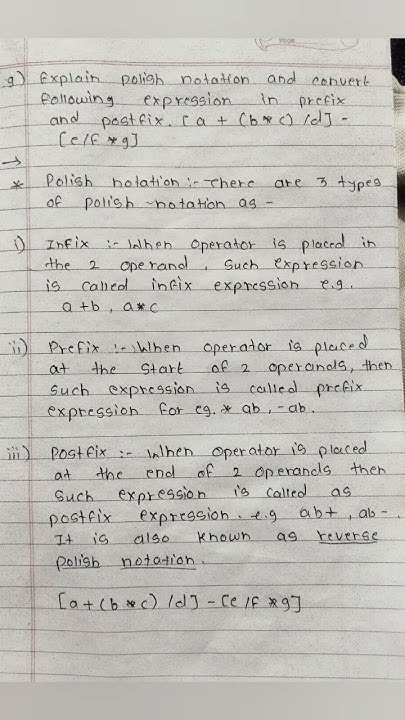 g) Explain polish notation and convert
following expression in prefix
and postfix. [a + (b*c) /d] -
[e/f *g]
→
* Polish notation :- There are 3 types
of polish notation as -
i) Infix :- When operator is placed in
the 2 operand, such expression
is called infix expression e.g.
a+b, a*c
ii) Prefix :- When operator is placed
at the start of 2 operands, then
such expression is called prefix
expression for eg. * ab, -ab.
iii) Postfix :- When operator is placed
at the end of 2 operands then
such expression is called as
postfix expression. e.g ab+, ab-.
It is also known as reverse
polish notation.
[a+(b*c) /d] - [e/f *g]